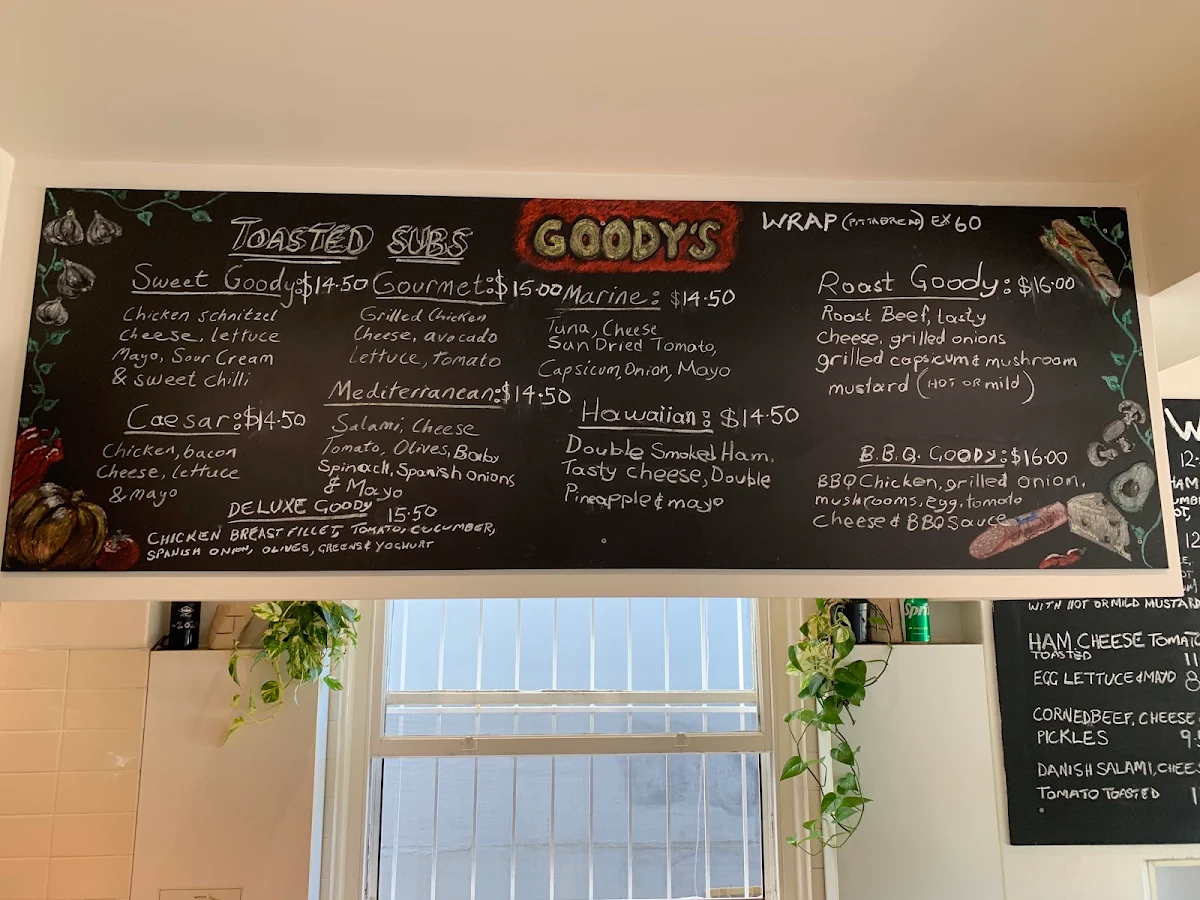 TOASTED SUBS
GOODY'S
WRAP (PITTABREAD) EX 60
Sweet Goody: $14.50
Chicken schnitzel
cheese, lettuce
Mayo, Sour Cream
& sweet chilli
Caesar: $14.50
Chicken, bacon
Cheese, lettuce
& mayo
Gourmet: $15.00
Grilled Chicken
Cheese, avocado
Lettuce, Tomato
Mediterranean: $14.50
Salami, Cheese
Tomato, Olives, Baby
Spinach, Spanish Onions
& Mayo
DELUXE GOODY 15.50
CHICKEN BREAST FILLET, TOMATO, CUCUMBER,
SPANISH ONION, OLIVES, GREENS & YOGHURT
Marine: $14.50
Tuna, Cheese
Sun Dried Tomato,
Capsicum, Onion, Mayo
Hawaiian: $14.50
Double Smoked Ham,
Tasty Cheese, Double
Pineapple & mayo
Roast Goody: $16.00
Roast Beef, tasty
Cheese, grilled onions
grilled capsicum & mushroom
mustard (HOT OR mild)
B.B.Q. GOODY: $16.00
BBQ Chicken, grilled onion,
mushrooms, egg, tomato
Cheese & BBQ Sauce
WITH HOT OR MILD MUSTARD
HAM CHEESE TOMATO
TOASTED
EGG LETTUCE & MAYO
CORNEDBEEF, CHEESE
PICKLES
DANISH SALAMI,
TOMATO TOASTED